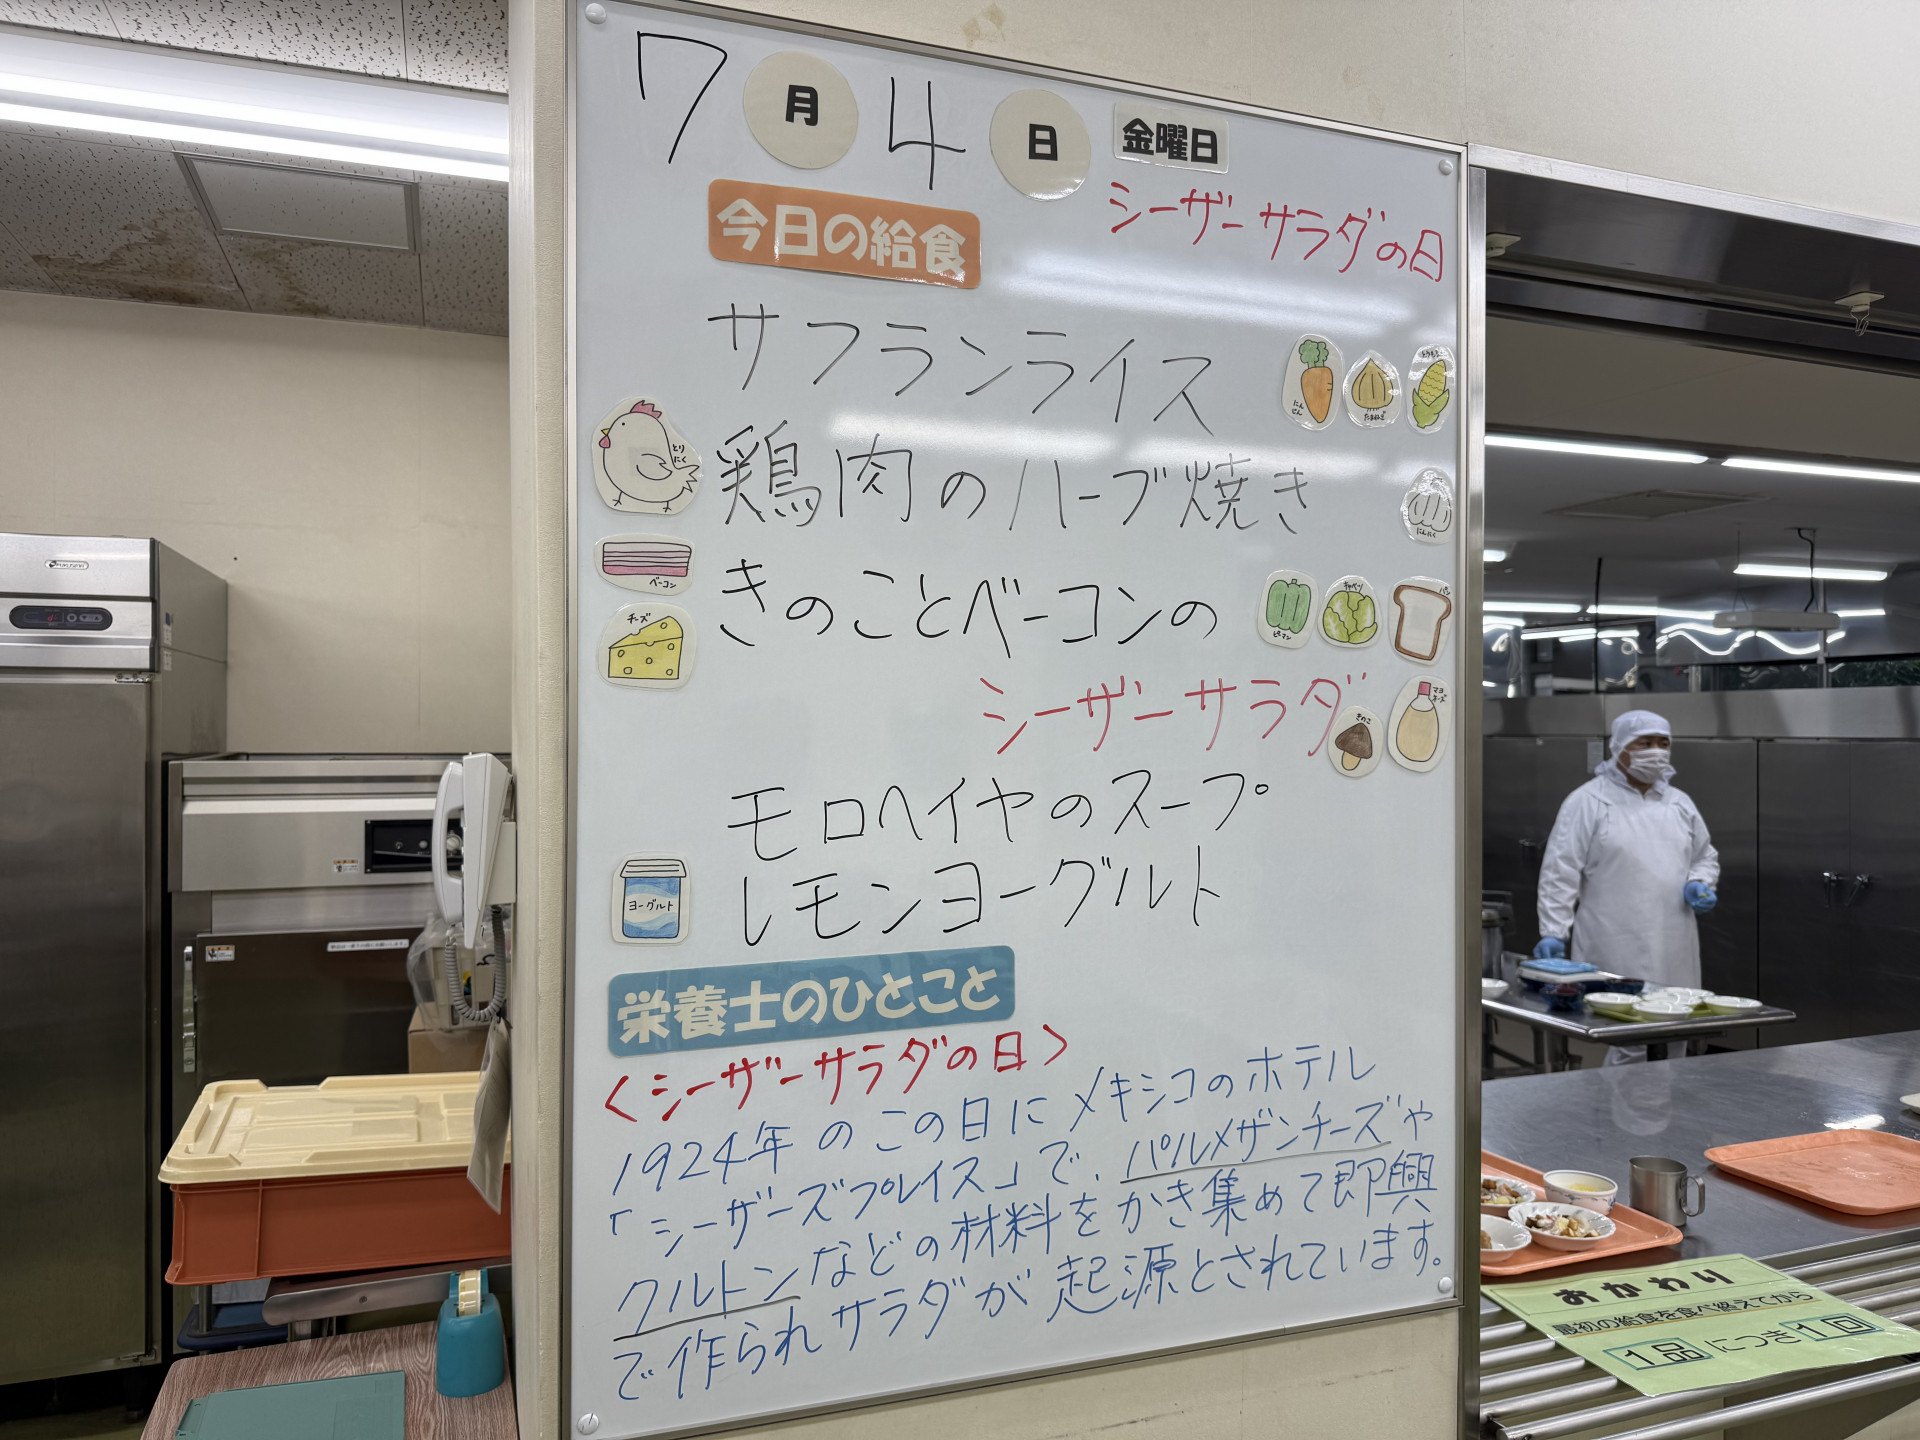 7月4日 金曜日
シーザーサラダの日
今日の給食
サフランライス
にんじん
たまねぎ
とうもろこし
とりにく
鶏肉のハーブ焼き
にんにく
ベーコン
チーズ
きのことベーコンの
ピーマン
キャベツ
パン
シーザーサラダ
きのこ
マヨネーズ
モロヘイヤのスープ
ヨーグルト
レモンヨーグルト
栄養士のひとこと
<シーザーサラダの日>
1924年のこの日にメキシコのホテル
「シーザーズプレイス」で、パルメザンチーズや
クルトンなどの材料をかき集めて即興
で作られサラダが起源とされています。
おかわり
最初の給食を食べ終えてから
1品につき1回